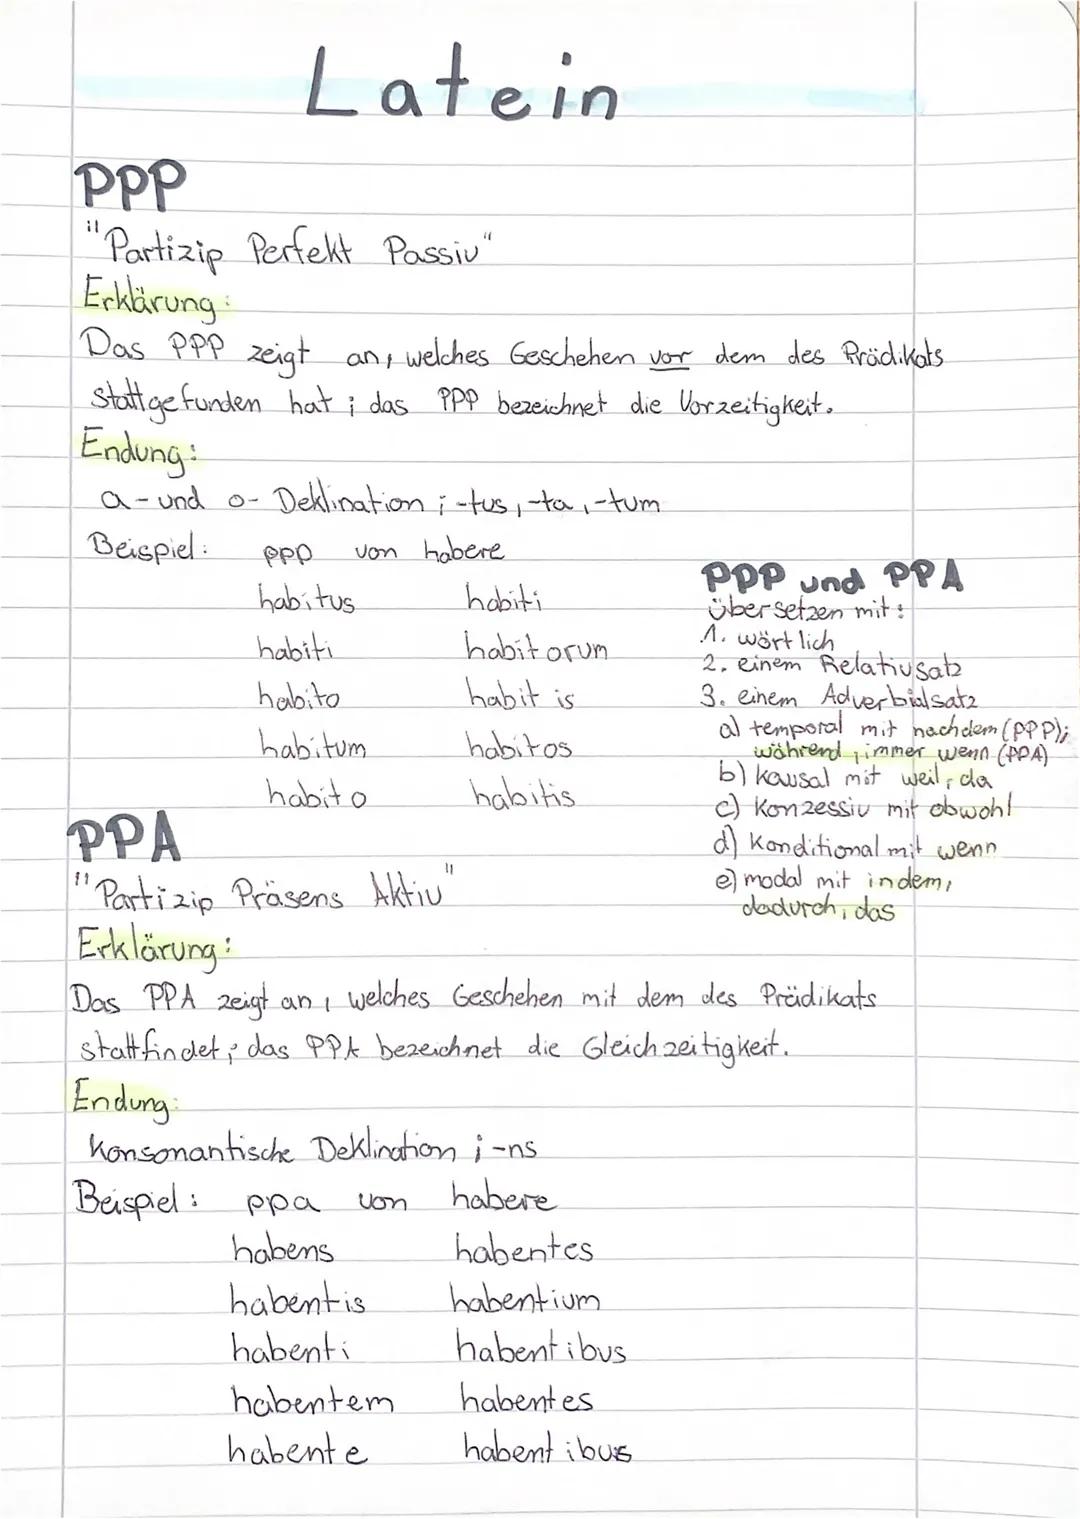 Latein
PPP
"Partizip Perfekt Passiv"
Erklärung:
Das PPP zeigt an, welches Geschehen vor dem des Prädikats
stattgefunden hat; das PPP bezeichnet die Vorzeitigkeit.
Endung:
a- und o- Deklination; -tus, -ta, -tum
Beispiel: ppp von habere
habitus habiti
habiti habitorum
habito habitis
habitum habitos
habito habitis
PPP und PPA
übersetzen mit:
1. wörtlich
2. einem Relativsatz
3. einem Adverbialsatz
a) temporal mit nachdem (PPP);
während, immer wenn (PPA)
b) kausal mit weil, da
c) konzessiv mit obwohl
d) konditional mit wenn
e) modal mit indem,
dadurch, das
PPA
"Partizip Präsens Aktiv"
Erklärung:
Das PPA zeigt an, welches Geschehen mit dem des Prädikats
stattfindet; das PPA bezeichnet die Gleichzeitigkeit.
Endung:
Konsonantische Deklination; -ns
Beispiel: ppa von habere
habens habentes
habentis habentium
habenti habentibus
habentem habentes
habente habentibus